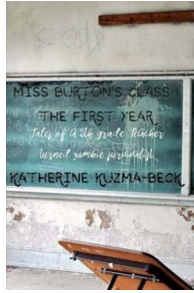 MISS BURTON'S CLASS:
THE FIRST YEAR
Tales of a 5th grade teacher
turned zombie survivalist
KATHERINE KUZMA-BECK